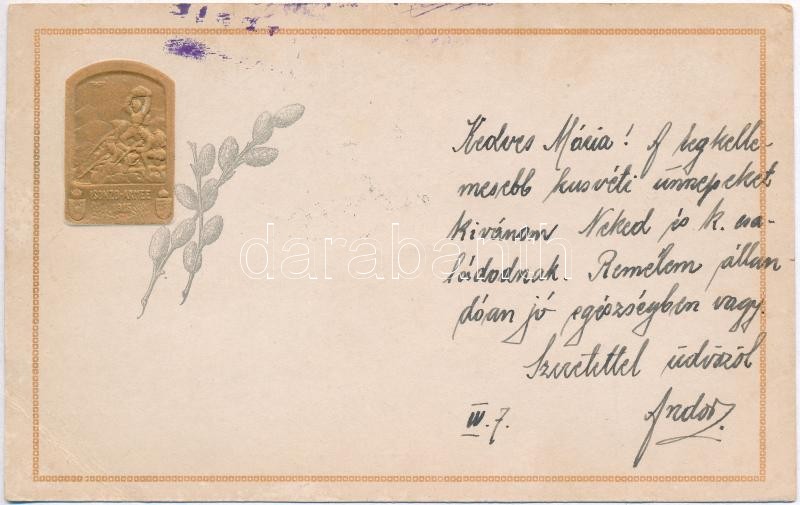 ISONZO-ARMEE
Kedves Mária! A legkelle-
mesebb husvéti ünnepeket
kivánom Neked és k. csa-
ládodnak. Remélem állan-
dóan jó egészségben vagy.
Szeretettel üdvözöl
IV. 7. Andor
darabanth.com